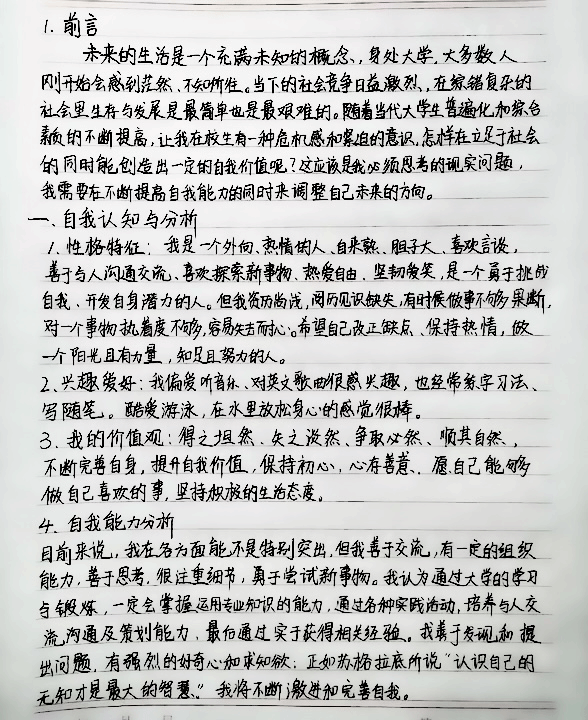 1. 前言
未来的生活是一个充满未知的概念、,身处大学,大多数人
刚开始会感到茫然、不知所往。当下的社会竞争日益激烈,在综错复杂的
社会里生存与发展是最简单也是最艰难的。随着当代大学生普遍化和综合
素质的不断提高,让我在校生有一种危机感和紧迫的意识,怎样在立足于社会
的同时能创造出一定的自我价值呢?这应该是我必须思考的现实问题,
我需要在不断提高自我能力的同时来调整自己未来的方向。
一、自我认知与分析
1. 性格特征: 我是一个外向、热情的人、自来熟、胆子大、喜欢言谈,
善于与人沟通交流、喜欢探索新事物、热爱自由、坚韧爱笑,是一个勇于挑战
自我、开发自身潜力的人。但我资历尚浅,阅历见识缺失,有时候做事不够果断,
对一个事物执着度不够,容易失去耐心。希望自己改正缺点、保持热情,做
一个阳光且有力量,知足且努力的人。
2. 兴趣爱好:我偏爱听音乐、对英文歌曲很感兴趣,也经常练字习法、
写随笔。酷爱游泳,在水里放松身心的感觉很棒。
3. 我的价值观:得之坦然、失之淡然、争取必然、顺其自然、,
不断完善自身,提升自我价值,保持初心,心存善意、愿自己能够
做自己喜欢的事,坚持积极的生活态度。
4. 自我能力分析
目前来说,我在各方面能不是特别突出,但我善于交流,有一定的组织
能力,善于思考,很注重细节,勇于尝试新事物。我认为通过大学的学习
与锻炼,一定会掌握运用专业知识的能力,通过各种实践活动,培养与人交
流沟通及策划能力,最后通过实于获得相关经验。我善于发现和提
出问题,有强烈的好奇心和求知欲:正如苏格拉底所说“认识自己的
无知才是最大的智慧。”我将不断激进和完善自我。